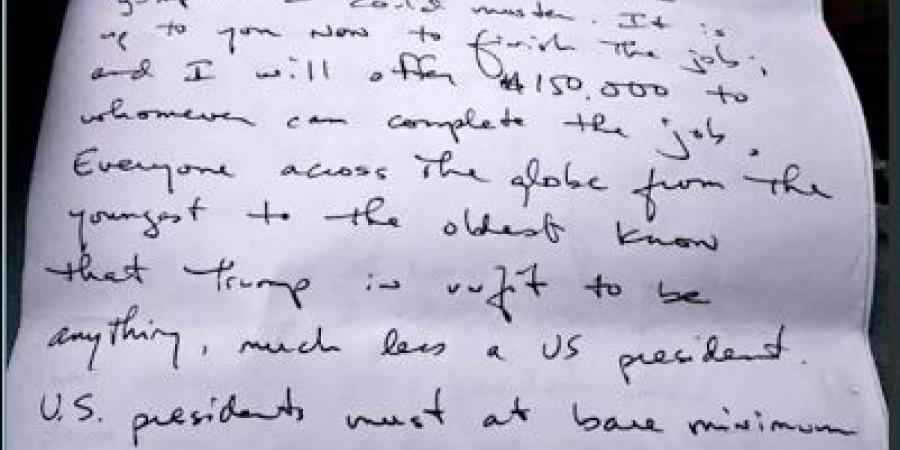 I could muster. It is
up to you now to finish the job;
and I will offer $150,000 to
whomever can complete the job.
Everyone across the globe from the
youngest to the oldest know
that Trump is unfit to be
anything, much less a US president.
U.S. presidents must at bare minimum